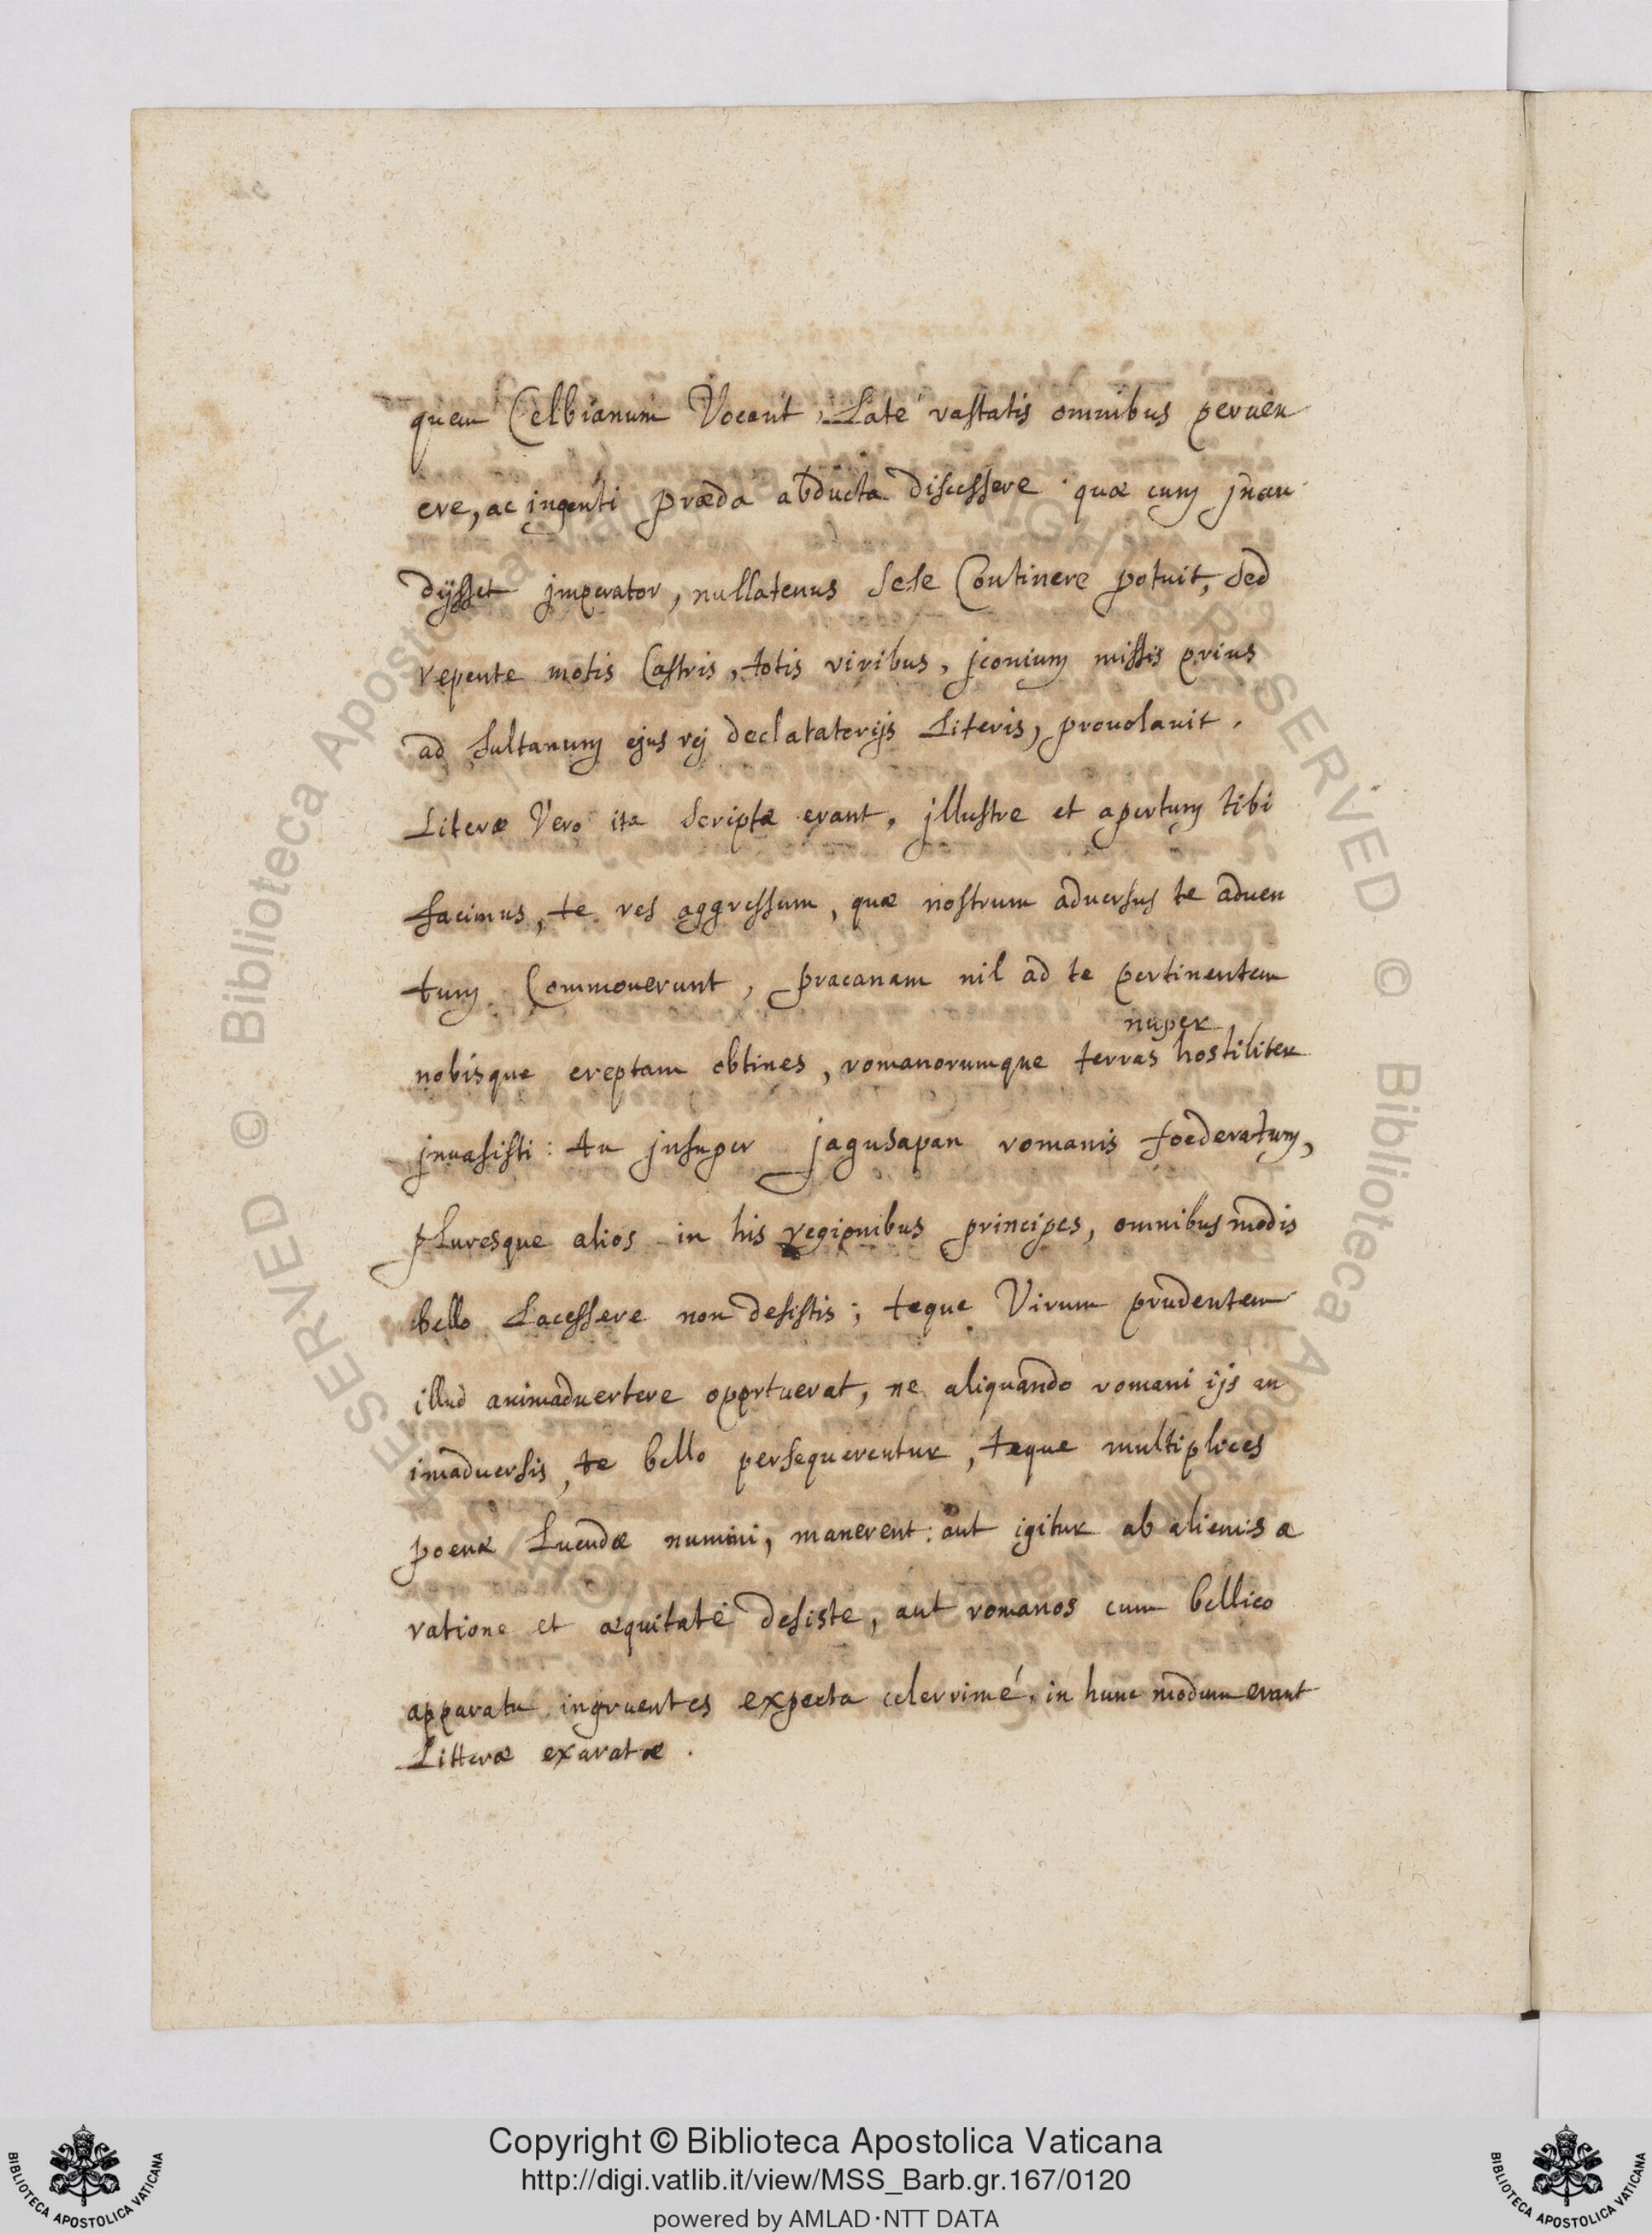 quem Celbianum Vocant, Late vastatis omnibus peruen
ere, ac ingenti præda abducta discessere quæ cum jnau
dijsset jmperator, nullatenus sese Continere potuit, sed
repente motis Castris, totis viribus, jconium missis prius
ad sultanum ejus rej declatatorijs Literis, prouolauit.
Literæ Vero ita scriptæ erant, jllustre et apertum tibi
facimus, te res aggressum, quæ nostrum aduersus te aduen
tum Commouerunt, pracanam nil ad te pertinentem
nuper
nobisque ereptam obtines, romanorumque terras hostiliter
jnuasisti: tu jnsuper jagusapan romanis foederatum,
pluresque alios in his regionibus principes, omnibus modis
bello Lacessere non desistis; teque Virum prudentem
illud animaduertere opportuerat, ne aliquando romani ijs an
imaduersis, te bello persequerentur, teque multiplices
poenæ Luendæ numini, manerent: aut igitur ab alienis a
ratione et æquitate desiste, aut romanos cum bellico
apparatu ingruentes expecta celerrimé, in hunc modum erant
Litteræ exaratæ.
© Biblioteca Apostolica Vaticana
RIGHTS RESERVED
© Biblioteca Apostolica Vaticana
RESERVED
Copyright © Biblioteca Apostolica Vaticana
http://digi.vatlib.it/view/MSS_Barb.gr.167/0120
powered by AMLAD·NTT DATA
BIBLIOTECA APOSTOLICA VATICANA
BIBLIOTECA APOSTOLICA VATICANA